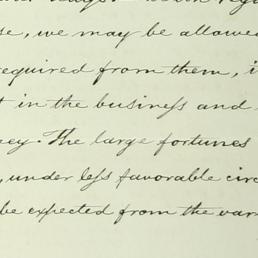 se, we may be allowed
required from them, i
t in the businefs and
ey. The large fortunes
, under lefs favorable circ
be expected from the var